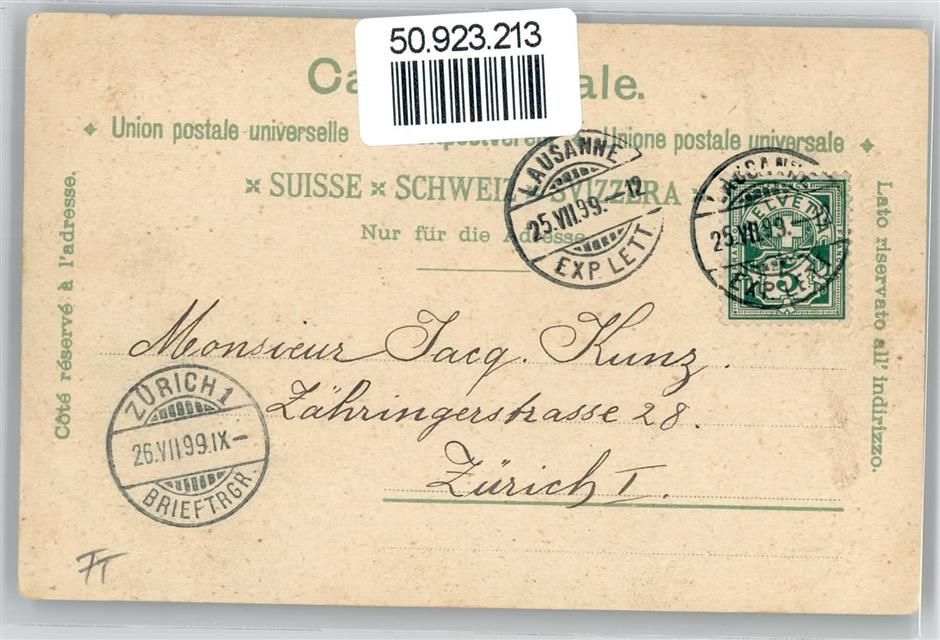 50.923.213
Ca ale.
Union postale universelle postver Unione postale universale
SUISSE × SCHWEIZ × SVIZZERA
Nur für die Adresse
Côté réservé à l'adresse.
Lato riservato all' indirizzo.
LAUSANNE
25.VII.99.–12
EXP. LETT
LAUSANNE
25.VII.99.–
EXP. LETT
HELVETIA
5
Monsieur Jacq. Kunz.
Zähringerstrasse 28.
Zürich I.
ZÜRICH 1
26.VII.99.IX–
BRIEFTRGR.